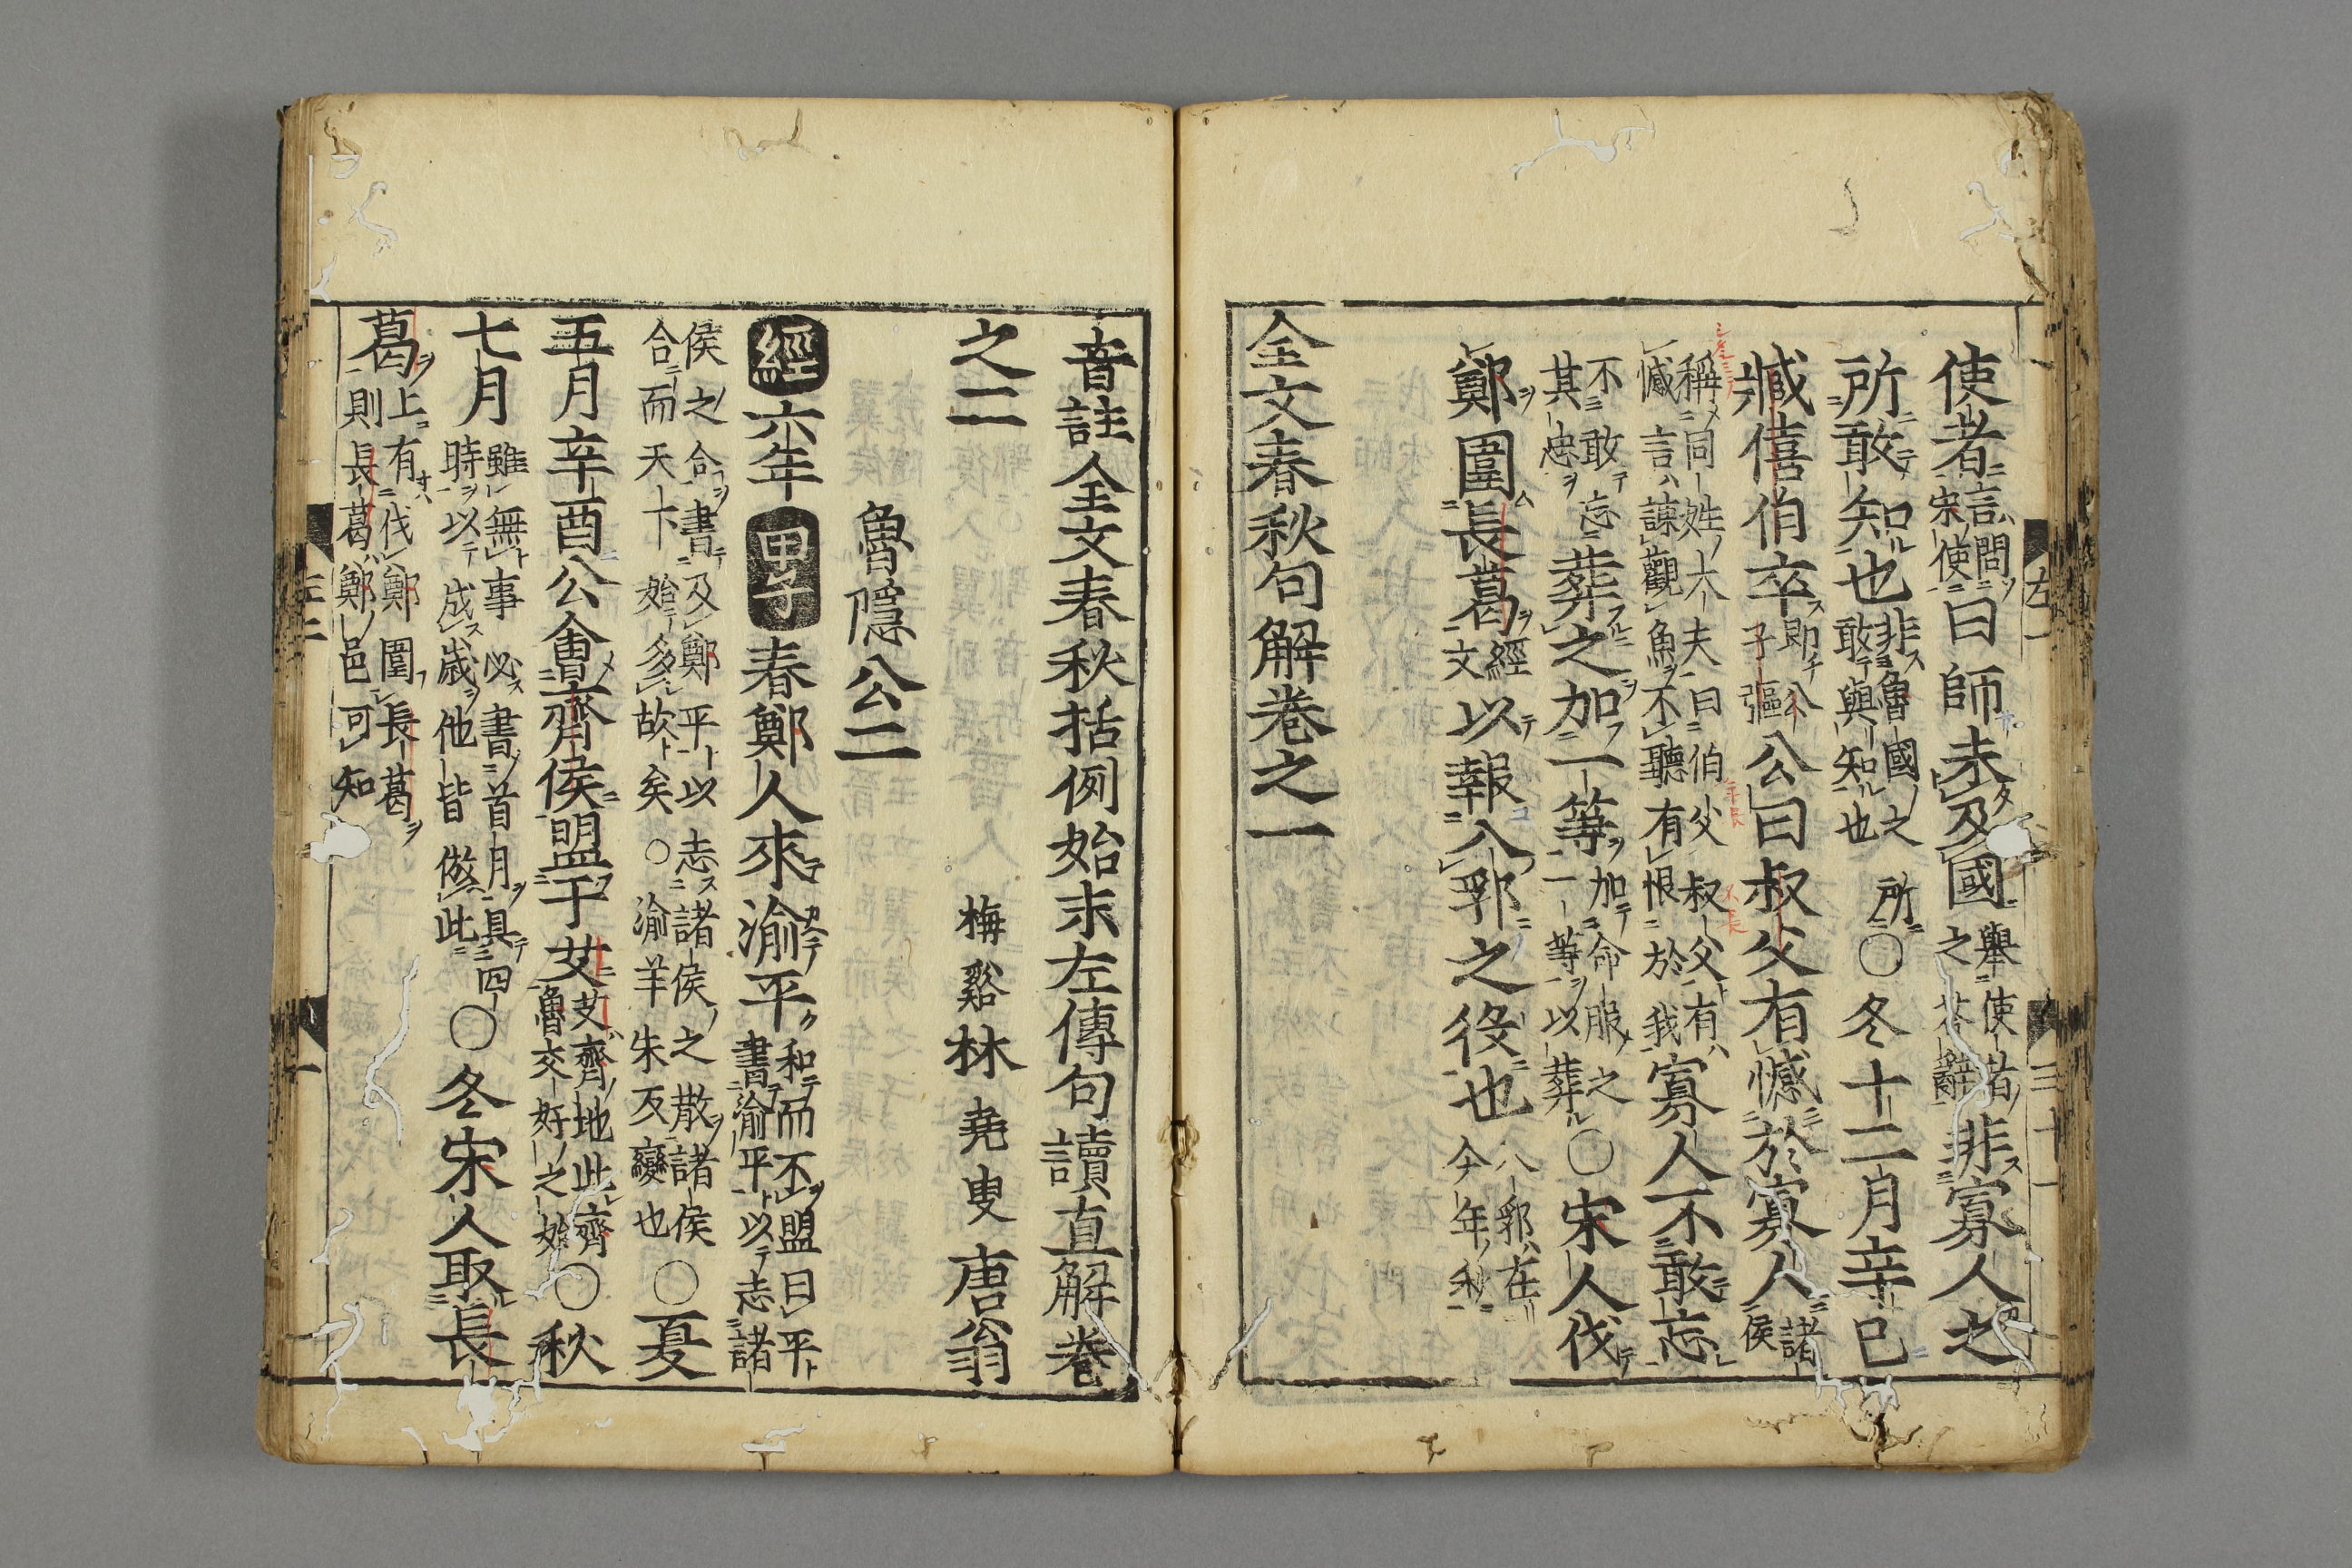 使者言問宋使曰師未及國舉使者之荅辭非寡人之
所敢知也非魯國之所敢與知也〇冬十二月辛巳
臧僖伯卒即公子彄公曰叔父有憾於寡人諸侯
稱同姓大夫曰伯父叔父有憾言諫觀魚不聽有恨於我寡人不敢忘
不敢忘其忠葬之加一等加命服之一等以葬〇宋人伐
鄭圍長葛經文以報入郛之役也入郛在今年秋
全文春秋句解卷之一
左一
三十一
音註全文春秋括例始末左傳句讀直解卷
之二
梅谿林堯叟唐翁
魯隱公二
經六年甲子春鄭人來渝平和而不盟曰平書渝平以志諸
侯之合書及鄭平以志諸侯之散諸侯合而天下始多故矣〇渝羊朱反變也〇夏
五月辛酉公會齊侯盟于艾艾齊地此齊魯交好之始〇秋
七月雖無事必書首月具四時以成歲他皆倣此〇冬宋人取長
葛上有伐鄭圍長葛則長葛鄭邑可知
左二
一